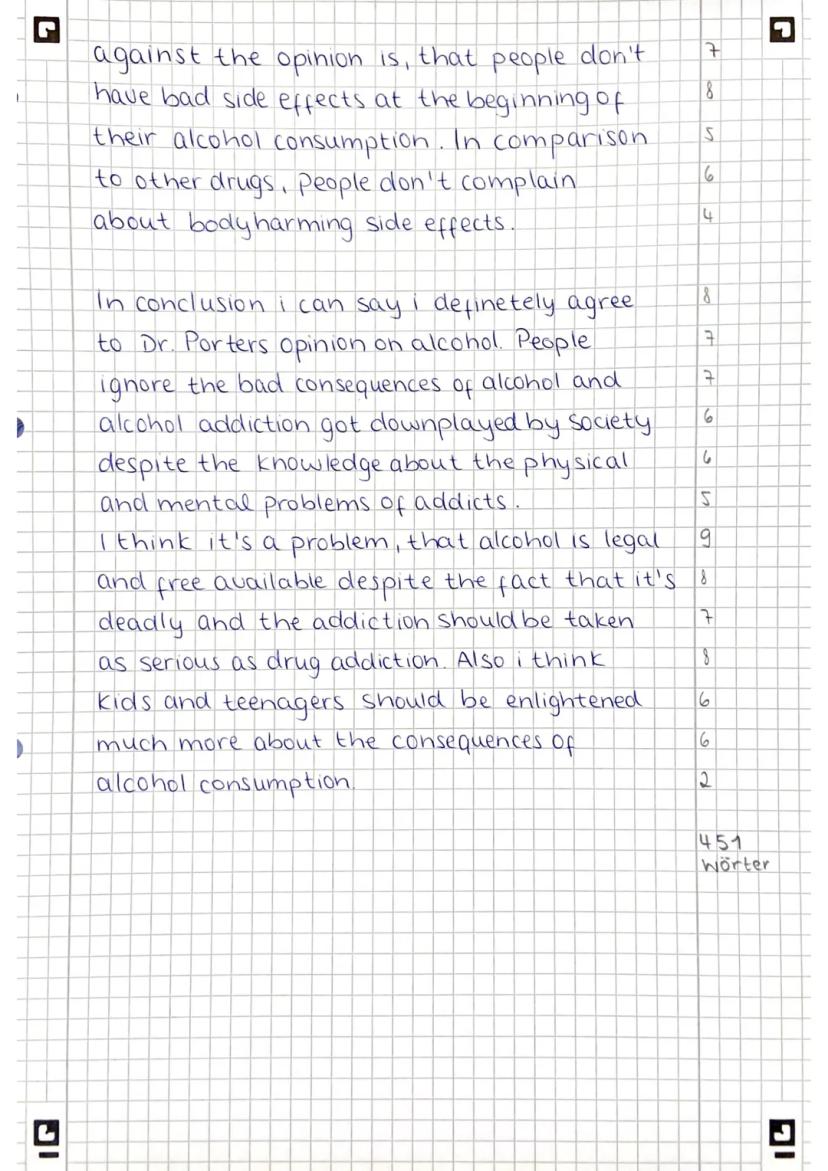 against the opinion is, that people don't 7
have bad side effects at the beginning of 8
their alcohol consumption. In comparison 5
to other drugs, people don't complain 6
about bodyharming side effects. 4
In conclusion i can say i definetely agree 8
to Dr. Porters opinion on alcohol. People 7
ignore the bad consequences of alcohol and 7
alcohol addiction got downplayed by society 6
despite the knowledge about the physical 6
and mental problems of addicts. 5
I think it's a problem, that alcohol is legal 9
and free available despite the fact that it's 8
deadly and the addiction should be taken 7
as serious as drug addiction. Also i think 8
kids and teenagers should be enlightened 6
much more about the consequences of 6
alcohol consumption. 2
451
Wörter